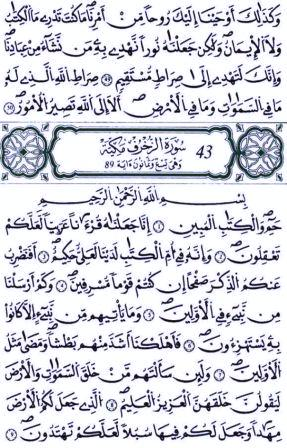 وَكَذَٰلِكَ أَوْحَيْنَا إِلَيْكَ رُوحًا مِنْ أَمْرِنَا مَا كُنْتَ تَدْرِي مَا الْكِتَٰبُ
وَلَا الْإِيمَانُ وَلَٰكِنْ جَعَلْنَٰهُ نُورًا نَهْدِي بِهِ مَنْ نَشَاءُ مِنْ عِبَادِنَا
وَإِنَّكَ لَتَهْدِي إِلَىٰ صِرَاطٍ مُسْتَقِيمٍ ٥٢ صِرَاطِ اللَّهِ الَّذِي لَهُ
مَا فِي السَّمَٰوَاتِ وَمَا فِي الْأَرْضِ أَلَا إِلَى اللَّهِ تَصِيرُ الْأُمُورُ ٥٣
43 سُورَةُ الزُّخْرُفِ مَكِّيَّة
وَهِيَ تِسْعٌ وَثَمَانُونَ ءَايَة 89
بِسْمِ اللَّهِ الرَّحْمَٰنِ الرَّحِيمِ
حم وَالْكِتَٰبِ الْمُبِينِ ١ إِنَّا جَعَلْنَٰهُ قُرْءَٰنًا عَرَبِيًّا لَعَلَّكُمْ
تَعْقِلُونَ ٢ وَإِنَّهُ فِي أُمِّ الْكِتَٰبِ لَدَيْنَا لَعَلِيٌّ حَكِيمٌ ٣ أَفَنَضْرِبُ
عَنْكُمُ الذِّكْرَ صَفْحًا إِنْ كُنْتُمْ قَوْمًا مُسْرِفِينَ ٤ وَكَمْ أَرْسَلْنَا
مِنْ نَبِيءٍ فِي الْأَوَّلِينَ ٥ وَمَا يَأْتِيهِمْ مِنْ نَبِيءٍ إِلَّا كَانُوا
بِهِ يَسْتَهْزِءُونَ ٦ فَأَهْلَكْنَا أَشَدَّ مِنْهُمْ بَطْشًا وَمَضَىٰ مَثَلُ
الْأَوَّلِينَ ٧ وَلَئِنْ سَأَلْتَهُمْ مَنْ خَلَقَ السَّمَٰوَاتِ وَالْأَرْضَ
لَيَقُولُنَّ خَلَقَهُنَّ الْعَزِيزُ الْعَلِيمُ ٨ الَّذِي جَعَلَ لَكُمُ الْأَرْضَ
مِهَٰدًا وَجَعَلَ لَكُمْ فِيهَا سُبُلًا لَعَلَّكُمْ تَهْتَدُونَ ٩